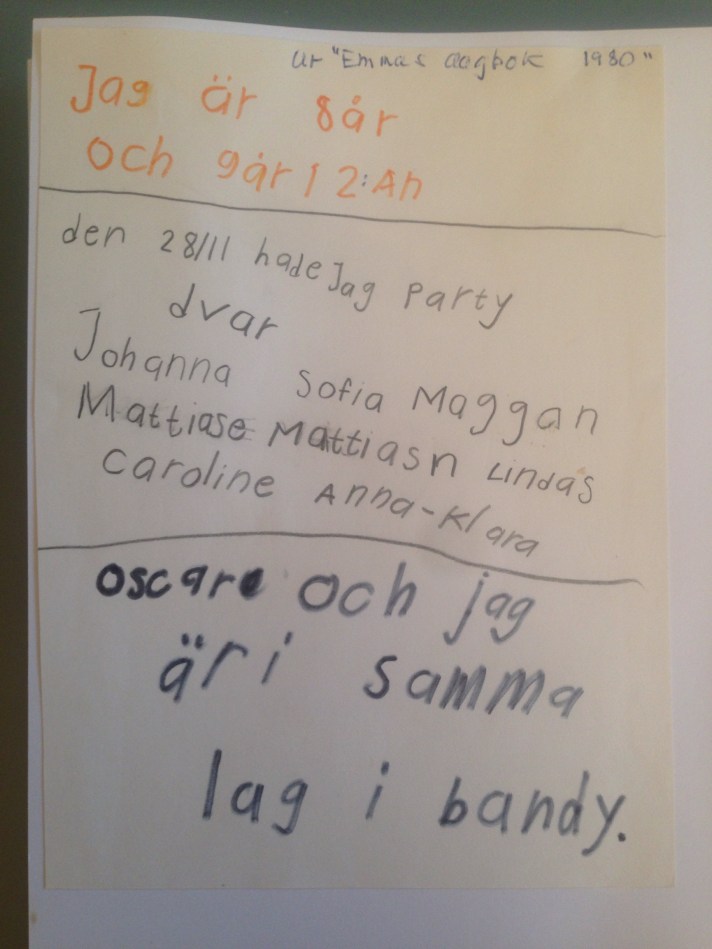 ur "Emmas dagbok 1980"
Jag är 8år
och går i 2:An
den 28/11 hade Jag Party
dvar
Johanna Sofia Maggan
Mattiase Mattiasn Lindas
Caroline Anna-Klara
oscare och jag
är i samma
lag i bandy.